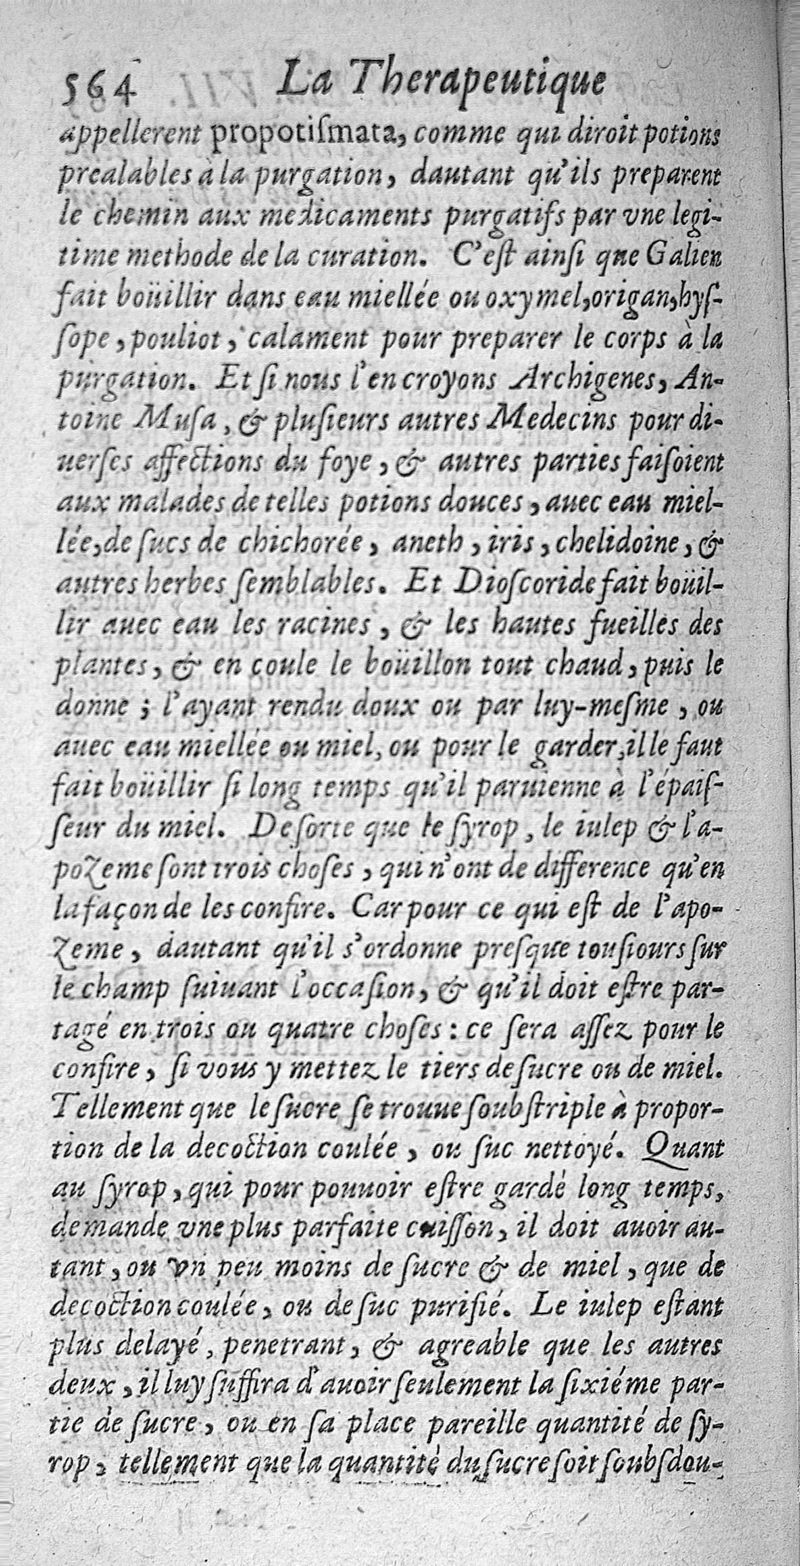 564 La Therapeutique
appellerent propotiſmata, comme qui diroit potions
prealables à la purgation, dautant qu'ils preparent
le chemin aux medicaments purgatifs par vne legi-
time methode de la curation. C'eſt ainſi que Galien
fait boüillir dans eau miellée ou oxymel, origan, hyſ-
ſope, pouliot, calament pour preparer le corps à la
purgation. Et ſi nous l'en croyons Archigenes, An-
toine Muſa, & pluſieurs autres Medecins pour di-
uerſes affections du foye, & autres parties faiſoient
aux malades de telles potions douces, auec eau miel-
lée, de ſucs de chichorée, aneth, iris, chelidoine, &
autres herbes ſemblables. Et Dioſcoride fait boüil-
lir auec eau les racines, & les hautes fueilles des
plantes, & en coule le boüillon tout chaud, puis le
donne; l'ayant rendu doux ou par luy-meſme, ou
auec eau miellée ou miel, ou pour le garder, il le faut
fait boüillir ſi long temps qu'il paruienne à l'épaiſ-
ſeur du miel. De ſorte que le ſyrop, le iulep & l'a-
pozeme ſont trois choſes, qui n'ont de difference qu'en
la façon de les confire. Car pour ce qui eſt de l'apo-
zeme, dautant qu'il s'ordonne preſque touſiours ſur
le champ ſuiuant l'occaſion, & qu'il doit eſtre par-
tagé en trois ou quatre choſes: ce ſera aſſez pour le
confire, ſi vous y mettez le tiers de ſucre ou de miel.
Tellement que le ſucre ſe trouue ſoubſtriple à propor-
tion de la decoction coulée, ou ſuc nettoyé. Quant
au ſyrop, qui pour pouuoir eſtre gardé long temps,
demande vne plus parfaite cuiſſon, il doit auoir au-
tant, ou vn peu moins de ſucre & de miel, que de
decoction coulée, ou de ſuc purifié. Le iulep eſtant
plus delayé, penetrant, & agreable que les autres
deux, il luy ſuffira d'auoir ſeulement la ſixiéme par-
tie de ſucre, ou en ſa place pareille quantité de ſy-
rop, tellement que la quantité du ſucre ſoit ſoubſdou-